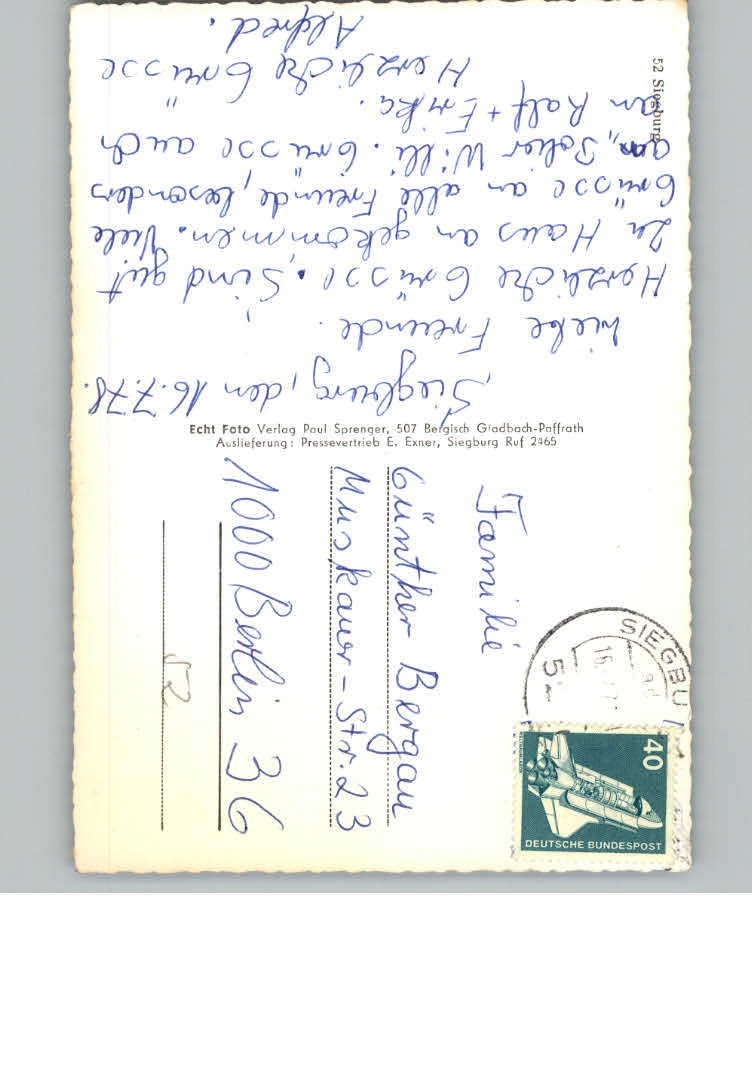 Siegburg, den 16.7.78.
Liebe Freunde.
Herzliche Grüsse. Sind gut
zu Haus an gekommen. Viele
Grüsse an alle Freunde, besonders
an „Polier Willi. Grüsse auch
an Ralf + Erika.
Herzliche Grüsse
Alfred.
52 Siegburg
Echt Foto Verlag Paul Sprenger, 507 Bergisch Gladbach-Paffrath
Auslieferung: Pressevertrieb E. Exner, Siegburg Ruf 2465
Familie
Günther Bergau
Muskauer-Str. 23
1000 Berlin 36
SIEGBU
16.
40
DEUTSCHE BUNDESPOST